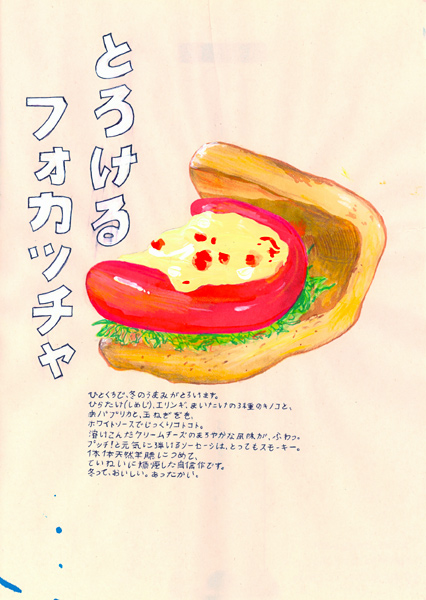 とろける
フォカッチャ
ひとくちで、冬のうまみがとろけます。
ひらたけ(しめじ)、エリンギ、まいたけの3種のキノコと、
赤パプリカと、玉ねぎを、
ホワイトソースでじっくりコトコト。
溶けこんだクリームチーズのまろやかな風味が、ふわっ。
プッチ!と元気に弾けるソーセージは、とってもスモーキー。
1本1本天然羊腸につめて、
ていねいに燻煙した自信作です。
冬って、おいしい。あったかい。